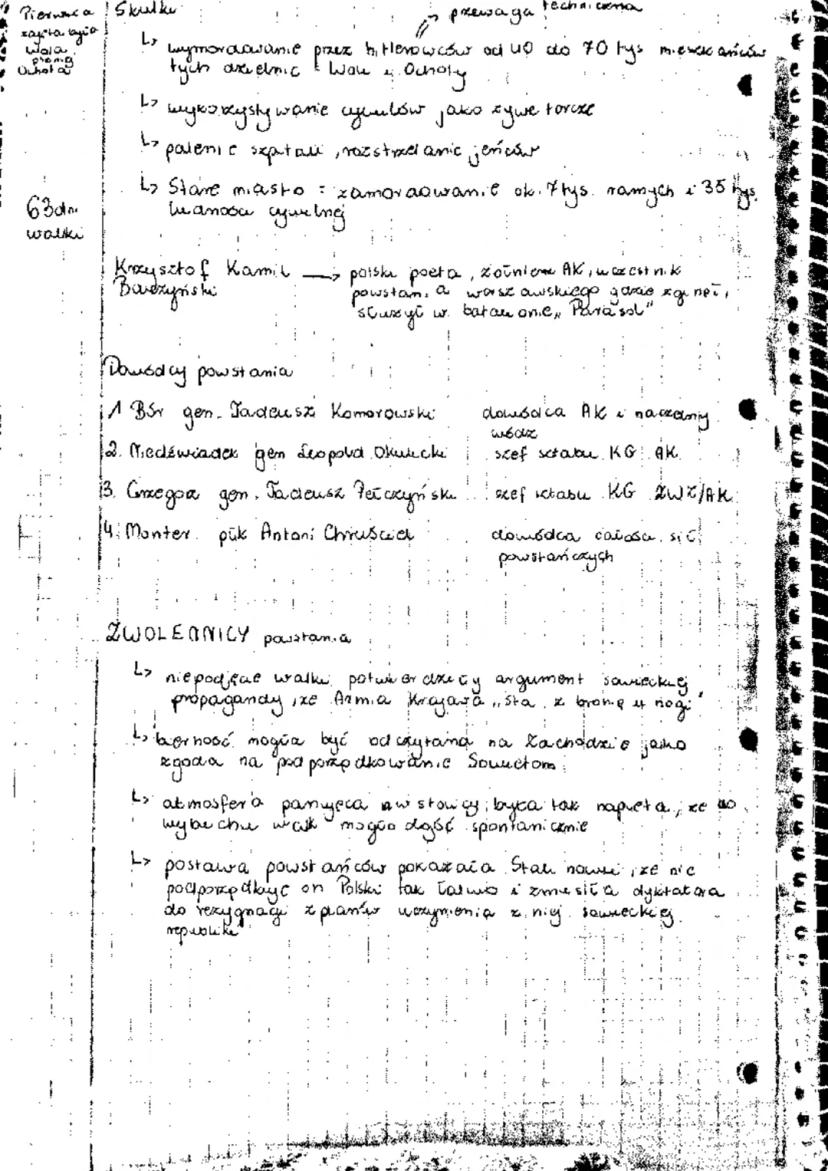 przewaga techniczna
Pierwsza
zajęta była
Wola
później
Ochota
Skutki
↳ wymordowanie przez hitlerowców od 40 do 70 tys mieszkańców
tych dzielnic - Woli i Ochoty
↳ wykorzystywanie cywilów jako żywe tarcze
↳ palenie szpitali, rozstrzelanie jeńców
↳ Stare miasto = zamordowanie ok. 7 tys. rannych i 35 tys.
ludności cywilnej
63 dni
walki
Krzysztof Kamil → polski poeta, żołnierz AK, uczestnik
Baczyński powstania warszawskiego gdzie zginął,
służył w batalionie „Parasol"
Dowódcy powstania
1 Bór gen. Tadeusz Komorowski dowódca AK i naczelny
wódz
2. Niedźwiadek gen Leopold Okulicki szef sztabu KG AK
3. Grzegorz gen. Tadeusz Pełczyński szef sztabu KG ZWZ/AK
4. Monter płk Antoni Chruściel dowódca całości sił
powstańczych
ZWOLENNICY powstania
↳ niepodjęcie walki potwierdziły argument sowieckiej
propagandy, że Armia Krajowa „stał z bronią u nogi"
↳ bierność mogła być odczytana na Zachodzie jako
zgoda na podporządkowanie Sowietom
↳ atmosfera panująca w stolicy była tak napięta, że do
wybuchu walk mogło dojść spontanicznie
↳ postawa powstańców pokazała Stalinowi, że nie
podporządkuje on Polski tak łatwo i zmusiła dyktatora
do rezygnacji z planów uczynienia z niej sowieckiej
republiki